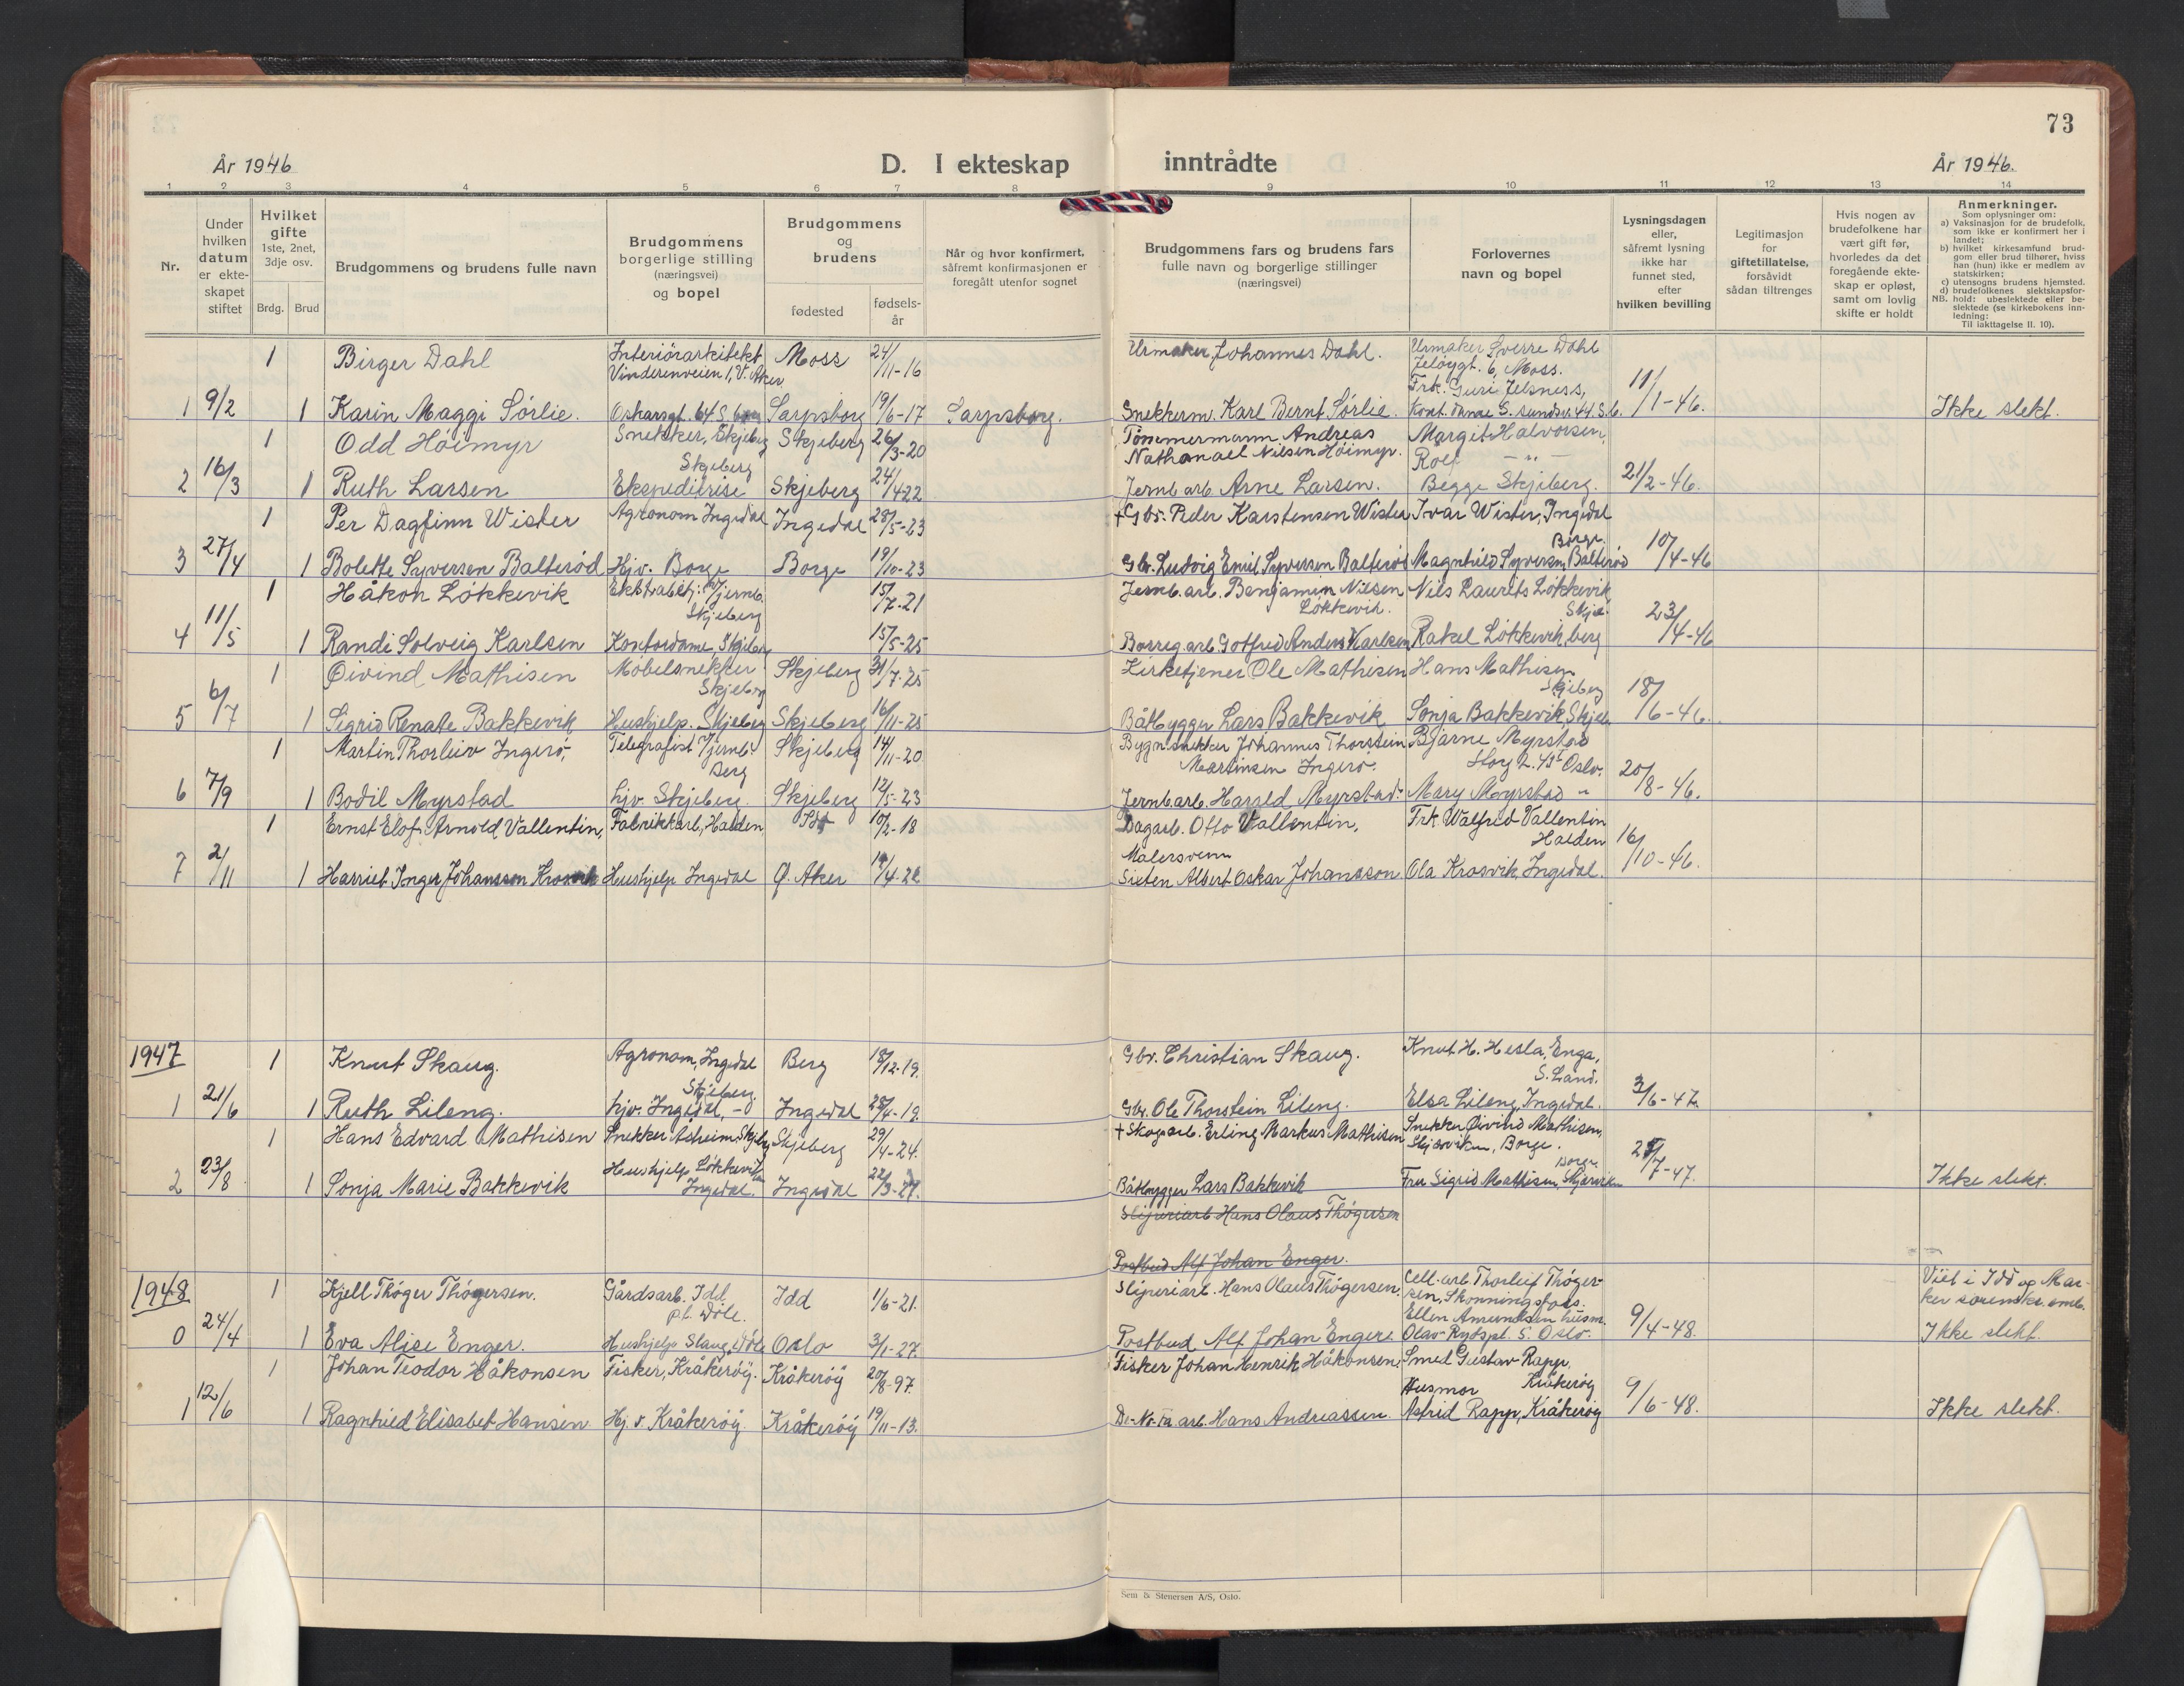 73
År 1946
D. I ekteskap inntrådte
År 1946.
1 2 3 4 5 6 7 8 9 10 11 12 13 14
Nr.
Under hvilken datum er ekteskapet stiftet
Hvilket gifte 1ste, 2net, 3dje osv.
Brdg. Brud
Brudgommens og brudens fulle navn
Brudgommens borgerlige stilling (næringsvei) og bopel
Brudgommens og brudens
fødested
fødselsår
Når og hvor konfirmert, såfremt konfirmasjonen er foregått utenfor sognet
Brudgommens fars og brudens fars fulle navn og borgerlige stillinger (næringsvei)
Forlovernes navn og bopel
Lysningsdagen eller, såfremt lysning ikke har funnet sted, efter hvilken bevilling
Legitimasjon for giftetillatelse, forsåvidt sådan tiltrenges
Hvis nogen av brudefolkene har vært gift før, hvorledes da det foregående ekteskap er opløst, samt om lovlig skifte er holdt
Anmerkninger.
Som oplysninger om:
a) Vaksinasjon for de brudefolk, som ikke er konfirmert her i landet;
b) hvilket kirkesamfund brudgom eller brud tilhører, hviss han (hun) ikke er medlem av statskirken;
c) utensogns brudens hjemsted.
d) brudefolkenes slektskapsforhold: ubeslektede eller beslektede (se kirkebokens innledning:
NB.
Til iakttagelse II. 10).
1 Birger Dahl Interiörarkitekt Vinderenveien 1, V. Aker Moss 24/11-16 Urmaker Johannes Dahl. Urmaker Sverre Dahl Jelöygt. 6, Moss.
1 9/2 1 Karin Maggi Sörlie. Oskarsgt. 64 S.borg Sarpsborg 19/6-17 Sarpsborg. Snekkerm. Karl Bernt Sörlie. Frk. Guri Jelsness, Kont. dame S. sundsv. 44. S.b. 11/1-46. Ikke slekt.
1 Odd Höimyr Snekker, Skjeberg Skjeberg 26/3-20 Tömmermann Andreas Nathanael Nilsen Höimyr. Margit Halvorsen,
2 16/3 1 Ruth Larsen Skjeberg Ekspeditrise Skjeberg 24/4-22 Jernb. arb. Arne Larsen. Rolf — " — Begge Skjeberg. 21/2-46.
1 Per Dagfinn Wister Agronom Ingedal Ingedal 28/5-23 + Gbr. Peder Karstensen Wister Ivar Wister, Ingedal
3 27/4 1 Bolette Syversen Balteröd Hjv. Borge Borge 19/10-23 Gbr. Ludvig Emil Syversen Balteröd Magnhild Syversen, Balteröd Borge. 10/4-46
1 Håkon Lökkevik Ekstrabetj. v/jernb. Skjeberg 15/7-21 Jernb. arb. Benjamin Nilsen Lökkevik. Nils Laurits Lökkevik
4 11/5 1 Randi Solveig Karlsen Kontordame, Skjeberg 15/5-25 Borreg. arb. Gotfred Anders Karlsen Rakel Lökkevik, Skjeberg 23/4-46
1 Öivind Mathisen Möbelsnekker Skjeberg Skjeberg 31/7-25 Kirketjener Ole Mathisen Hans Mathisen Skjeberg
5 6/7 1 Sigrid Renate Bakkevik Hushjelp. Skjeberg Skjeberg 16/11-25 Båtbygger Lars Bakkevik Sonja Bakkevik, Skjeb. 18/6-46.
1 Martin Thorleiv Ingerö, Telegrafist v/jernb. Berg Skjeberg 14/11-20. Bygn. snekker Johannes Thorstein Martinsen Ingerö. Bjarne Myrstad Storg. 2. 43 I Oslo.
6 7/9 1 Bodil Myrstad hjv. Skjeberg. Skjeberg 12/5-23 Jernb. arb. Harald Myrstad. Mary Myrstad " 20/8-46.
1 Ernst Elof Arnold Vallentin, Fabrikkarb, Halden Idd 10/2-18 Dagarb. Otto Vallentin, Frk Walfrid Vallentin Halden
7 2/11 1 Harriet Inger Johansson Krosvik Hushjelp Ingedal Ö. Aker 14/4-22 Malersvenn Sixten Albert Oskar Johansson. Ola Krosvik, Ingedal. 16/10-46.
1947 1 Knut Skaug. Agronom, Ingedal Skjeberg Berg 18/12-19. Gbr. Christian Skaug. Knut H. Hesla, Enga, S. Land.
1 21/6 1 Ruth Lileng. hjv. Ingedal, -" Ingedal 28/4-19. Gbr. Ole Thorstein Lileng. Elsa Lileng, Ingedal. 3/6-47.
1 Hans Edvard Mathisen Snekker Åsheim, Skjeberg Skjeberg 29/4-24. + Skogarb. Erling Markus Mathisen Snekker Öivind Mathisen, Skjærviken, Borge.
2 23/8 1 Sonja Marie Bakkevik Hushjelp Lökkevika Ingedal. Ingedal 22/3-27. Båtbygger Lars Bakkevik Fru Sigrid Mathisen, Skjærviken Borge 25/7-47. Ikke slekt.
Sliperiarb Hans Olaus Thögersen
Postbud Alf Johan Enger.
1948 1 Kjell Thöger Thögersen. Gårdsarb. Idd pl. Döle. Idd 1/6-21. Sliperiarb. Hans Olaus Thögersen. Cell. arb Thorleif Thögersen, Skonningsfoss. Viet i Idd og Marker sorenskr. emb.
0 24/4 1 Eva Alise Enger. Hushjelp Slaug, Döle Oslo 3/1-27. Postbud Alf Johan Enger. Ellen Amundsen husm. Olav Ryesspl. 5. Oslo. 9/4-48. Ikke slekt.
1 Johan Teodor Håkonsen Fisker, Kråkeröy. Kråkeröy 20/8-97. Fisker Johan Henrik Håkonsen. Smed Gustav Rapp, Kråkeröy
1 12/6 1 Ragnhild Elisabet Hansen Hj. v Kråkeröy. Kråkeröy 19/11-13. De-No-Fa arb. Hans Andreassen. Husmor Astrid Rapp, Kråkeröy 9/6-48. Ikke slekt.
Sem & Stenersen A/S, Oslo.